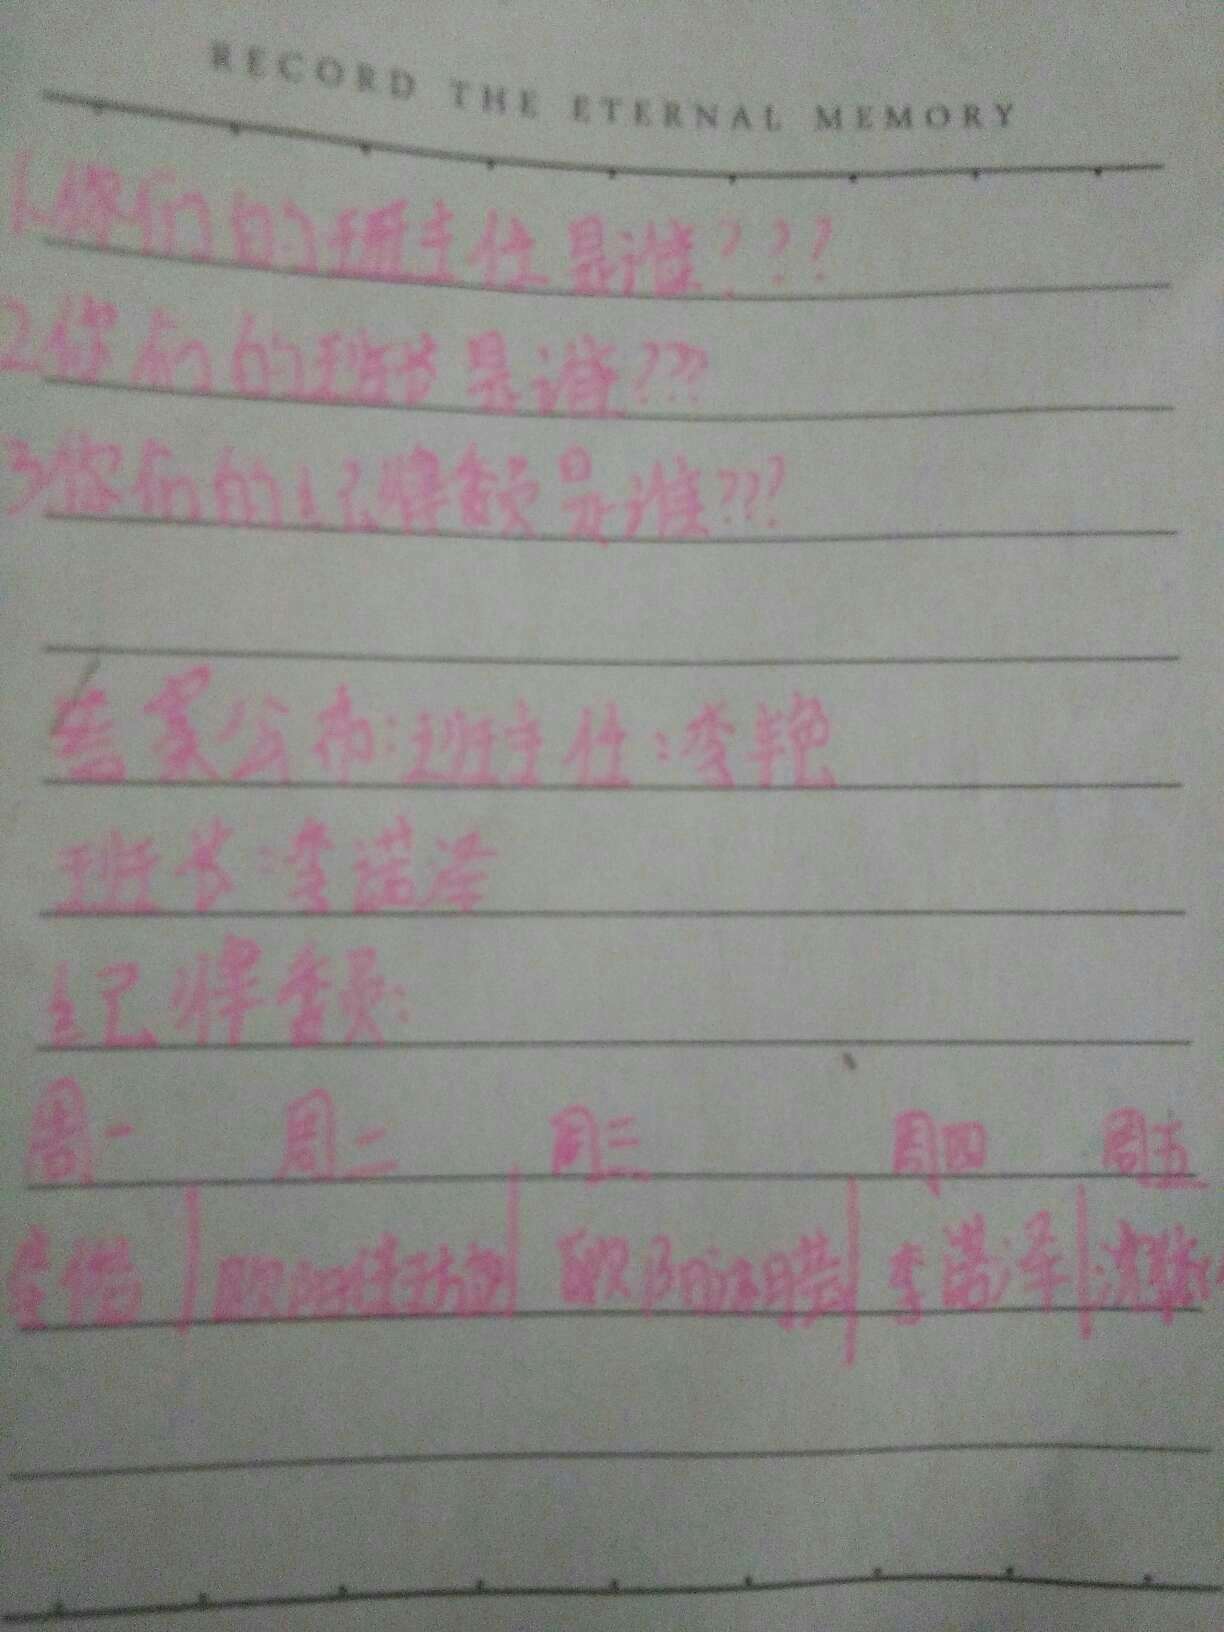 RECORD THE ETERNAL MEMORY
1.你们的班主任是谁???
2你们的班长是谁???
3你们的纪律委员是谁???
答案公布:班主任:李艳
班长:李诺泽
纪律委员:
周一 周二 周三 周四 周五
欧阳 欧阳 李诺泽